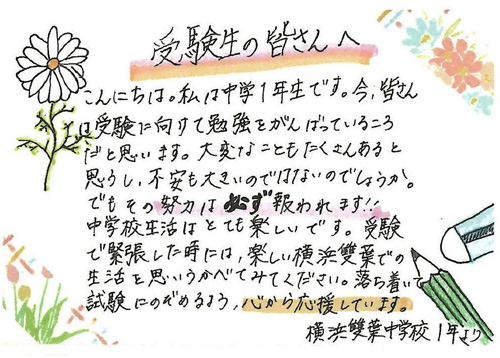 受験生の皆さんへ
こんにちは。私は中学1年生です。今、皆さん
は受験に向けて勉強をがんばっているころ
だと思います。大変なこともたくさんあると
思うし、不安も大きいのではないのでしょうか。
でもその努力は必ず報われます!!
中学校生活はとても楽しいです。受験
で緊張した時には、楽しい横浜雙葉での
生活を思いうかべてみてください。落ち着いて
試験にのぞめるよう、心から応援しています。
横浜雙葉中学校1年より